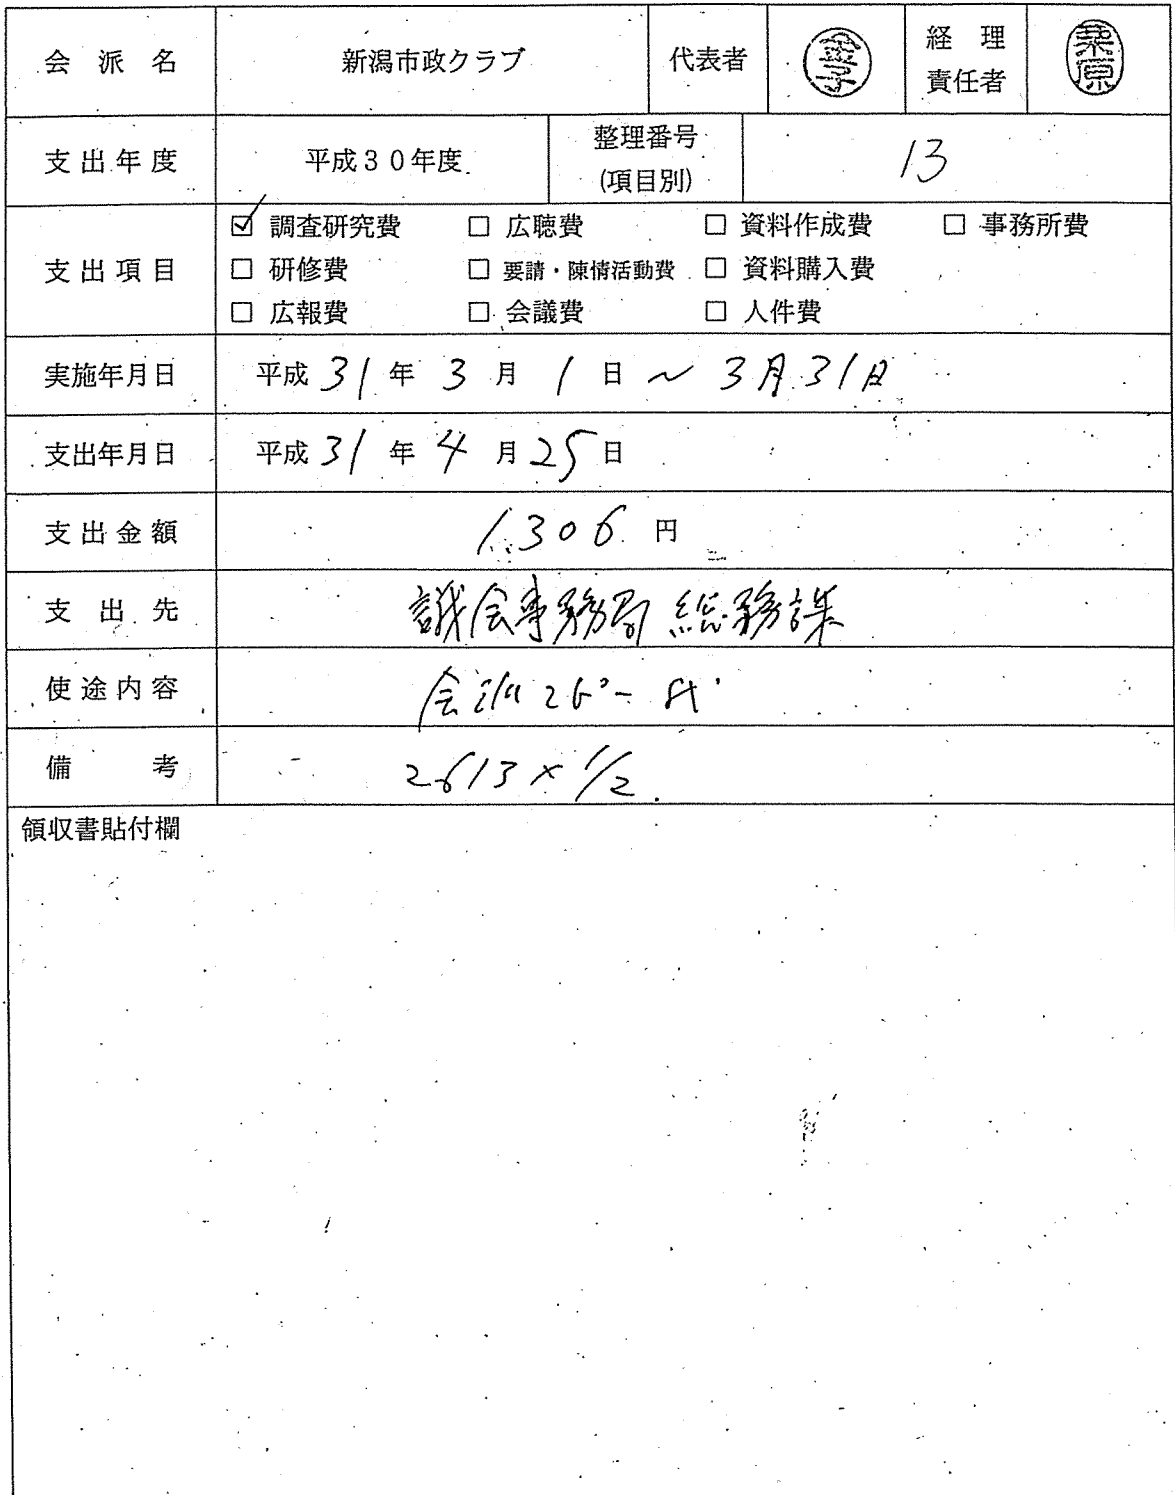 会派名 新潟市政クラブ 代表者 金子 経理責任者 栗原
支出年度 平成30年度 整理番号(項目別) 13
支出項目
☑ 調査研究費 □ 広聴費 □ 資料作成費 □ 事務所費
□ 研修費 □ 要請・陳情活動費 □ 資料購入費
□ 広報費 □ 会議費 □ 人件費
実施年月日 平成31年3月1日~3月31日
支出年月日 平成31年4月25日
支出金額 1,306円
支出先 議会事務局 総務課
使途内容 会派コピー代
備考 2613×1/2
領収書貼付欄